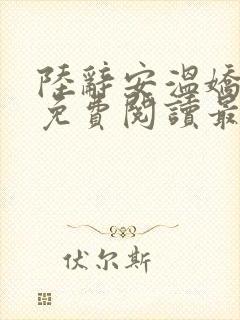 陸辭安溫嬌
免費閱讀最
伏尔斯